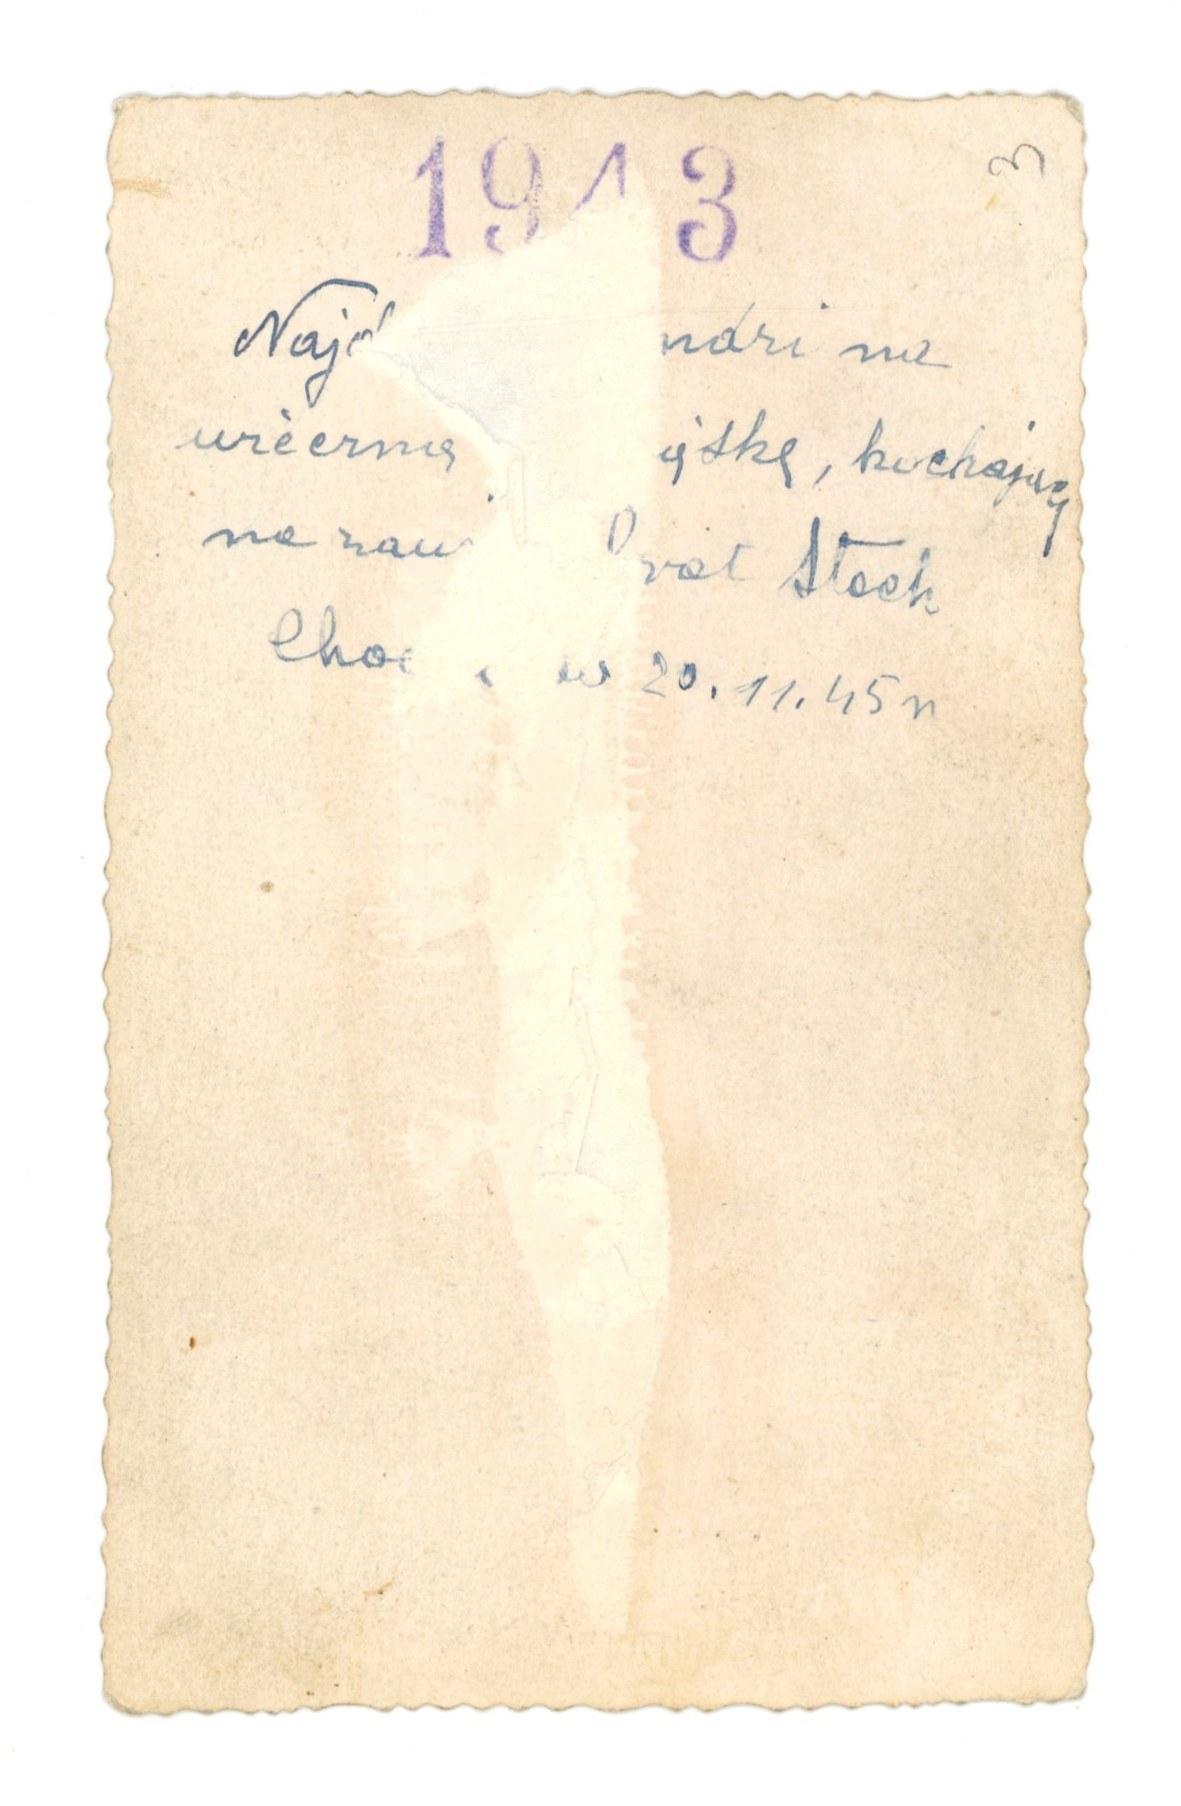 1943
3
Najd ndri na
wieczną ątkę, kochający
na zaw brat Stach
Choc w 20.11.45r